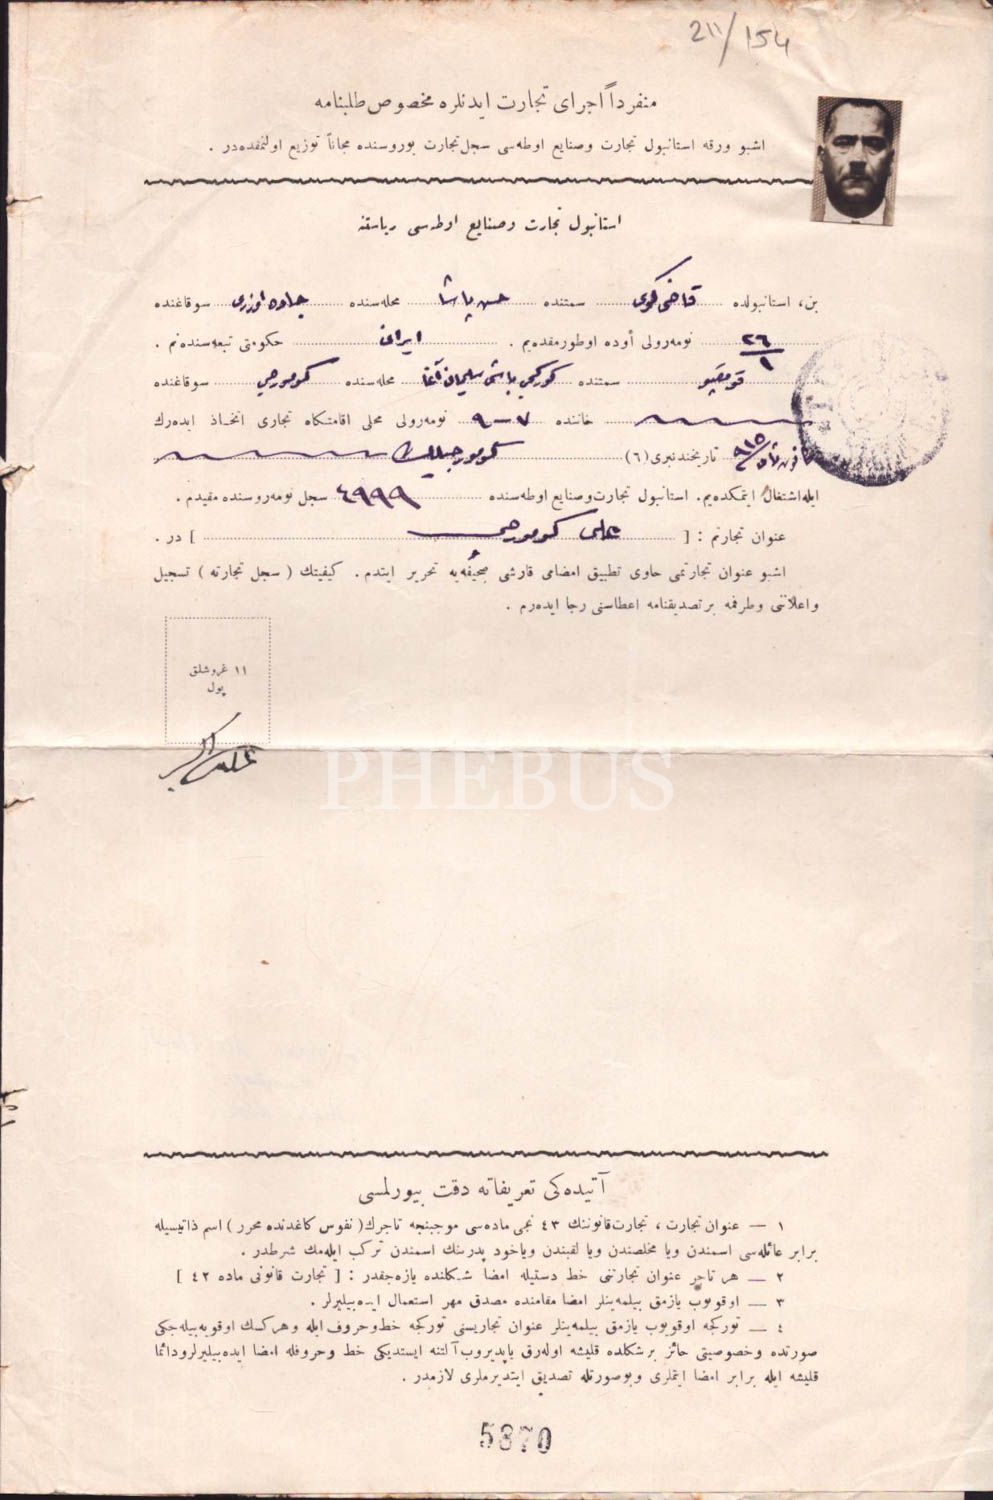 211/154
منفرداً اجرای تجارت ایدنلره مخصوص طلبنامه
اشبو ورقه استانبول تجارت وصنایع اوطه‌سی سجل تجارت بوروسنده مجاناً توزیع اولنمقده‌در .
استانبول تجارت وصنایع اوطه‌سی ریاستنه
بن، استانبولده قاضی کوی سمتنده حسن پاشا محله‌سنده جاده اوزری سوقاغنده
٢٦/١ نومه‌رولی أوده اوطورمقده‌یم . ایران حکومتی تبعه‌سنده‌نم .
قومقپو سمتنده کورکجی باشی سلیمان آغا محله‌سنده کومورجی سوقاغنده
خاننده ٧-٩ نومه‌رولی محلی اقامتکاه تجاری اتخاذ ایده‌رك
٩١٥ تاریخندنبری (٦) کومورجیلك
ایله اشتغال ایتمکده‌یم. استانبول تجارت وصنایع اوطه‌سنده ٤٩٩٩ سجل نومه‌روسنده مقیدم .
عنوان تجارتم : [ علی کومورجی ] در .
اشبو عنوان تجارتمی حاوی تطبیق امضامی قارشی صحیفه‌یه تحریر ایتدم . کیفیتك ( سجل تجارته ) تسجیل
واعلاننی وطرفمه بر تصدیقنامه اعطاسنی رجا ایده‌رم .
١١ غروشلق
پول
علی اکبر
PHEBUS
آتیده‌کی تعریفاته دقت بیورلمسی
١ — عنوان تجارت ، تجارت قانوننك ٤٣ نجی ماده‌سی موجبنجه تاجرك ( نفوس کاغدنده محرر ) اسم ذاتیسیله
برابر عائله‌سی اسمندن ویا مخلصندن ویا لقبندن ویاخود پدرینك اسمندن ترکب ایله‌مك شرطدر .
٢ — هر تاجر عنوان تجارتنی خط دستیله امضا شکلنده یازه‌جقدر : [ تجارت قانونی ماده ٤٢ ]
٣ — اوقویوب یازمق بیلمه‌ینلر امضا مقامنده مصدق مهر استعمال ایده‌بیلیرلر .
٤ — تورکجه اوقویوب یازمق بیلمه‌ینلر عنوان تجاریسنی تورکجه خط وحروف ایله وهرکسك اوقویه‌بیله‌جکی
صورتده وخصوصیتی حائز بر شکلده قلیشه اوله‌رق یاپدیروب آلتنه ایستدیکی خط وحروفله امضا ایده‌بیلیرلر ودائما
قلیشه ایله برابر امضا ایتملری وبوصورتله تصدیق ایتدیرملری لازمدر .
5870